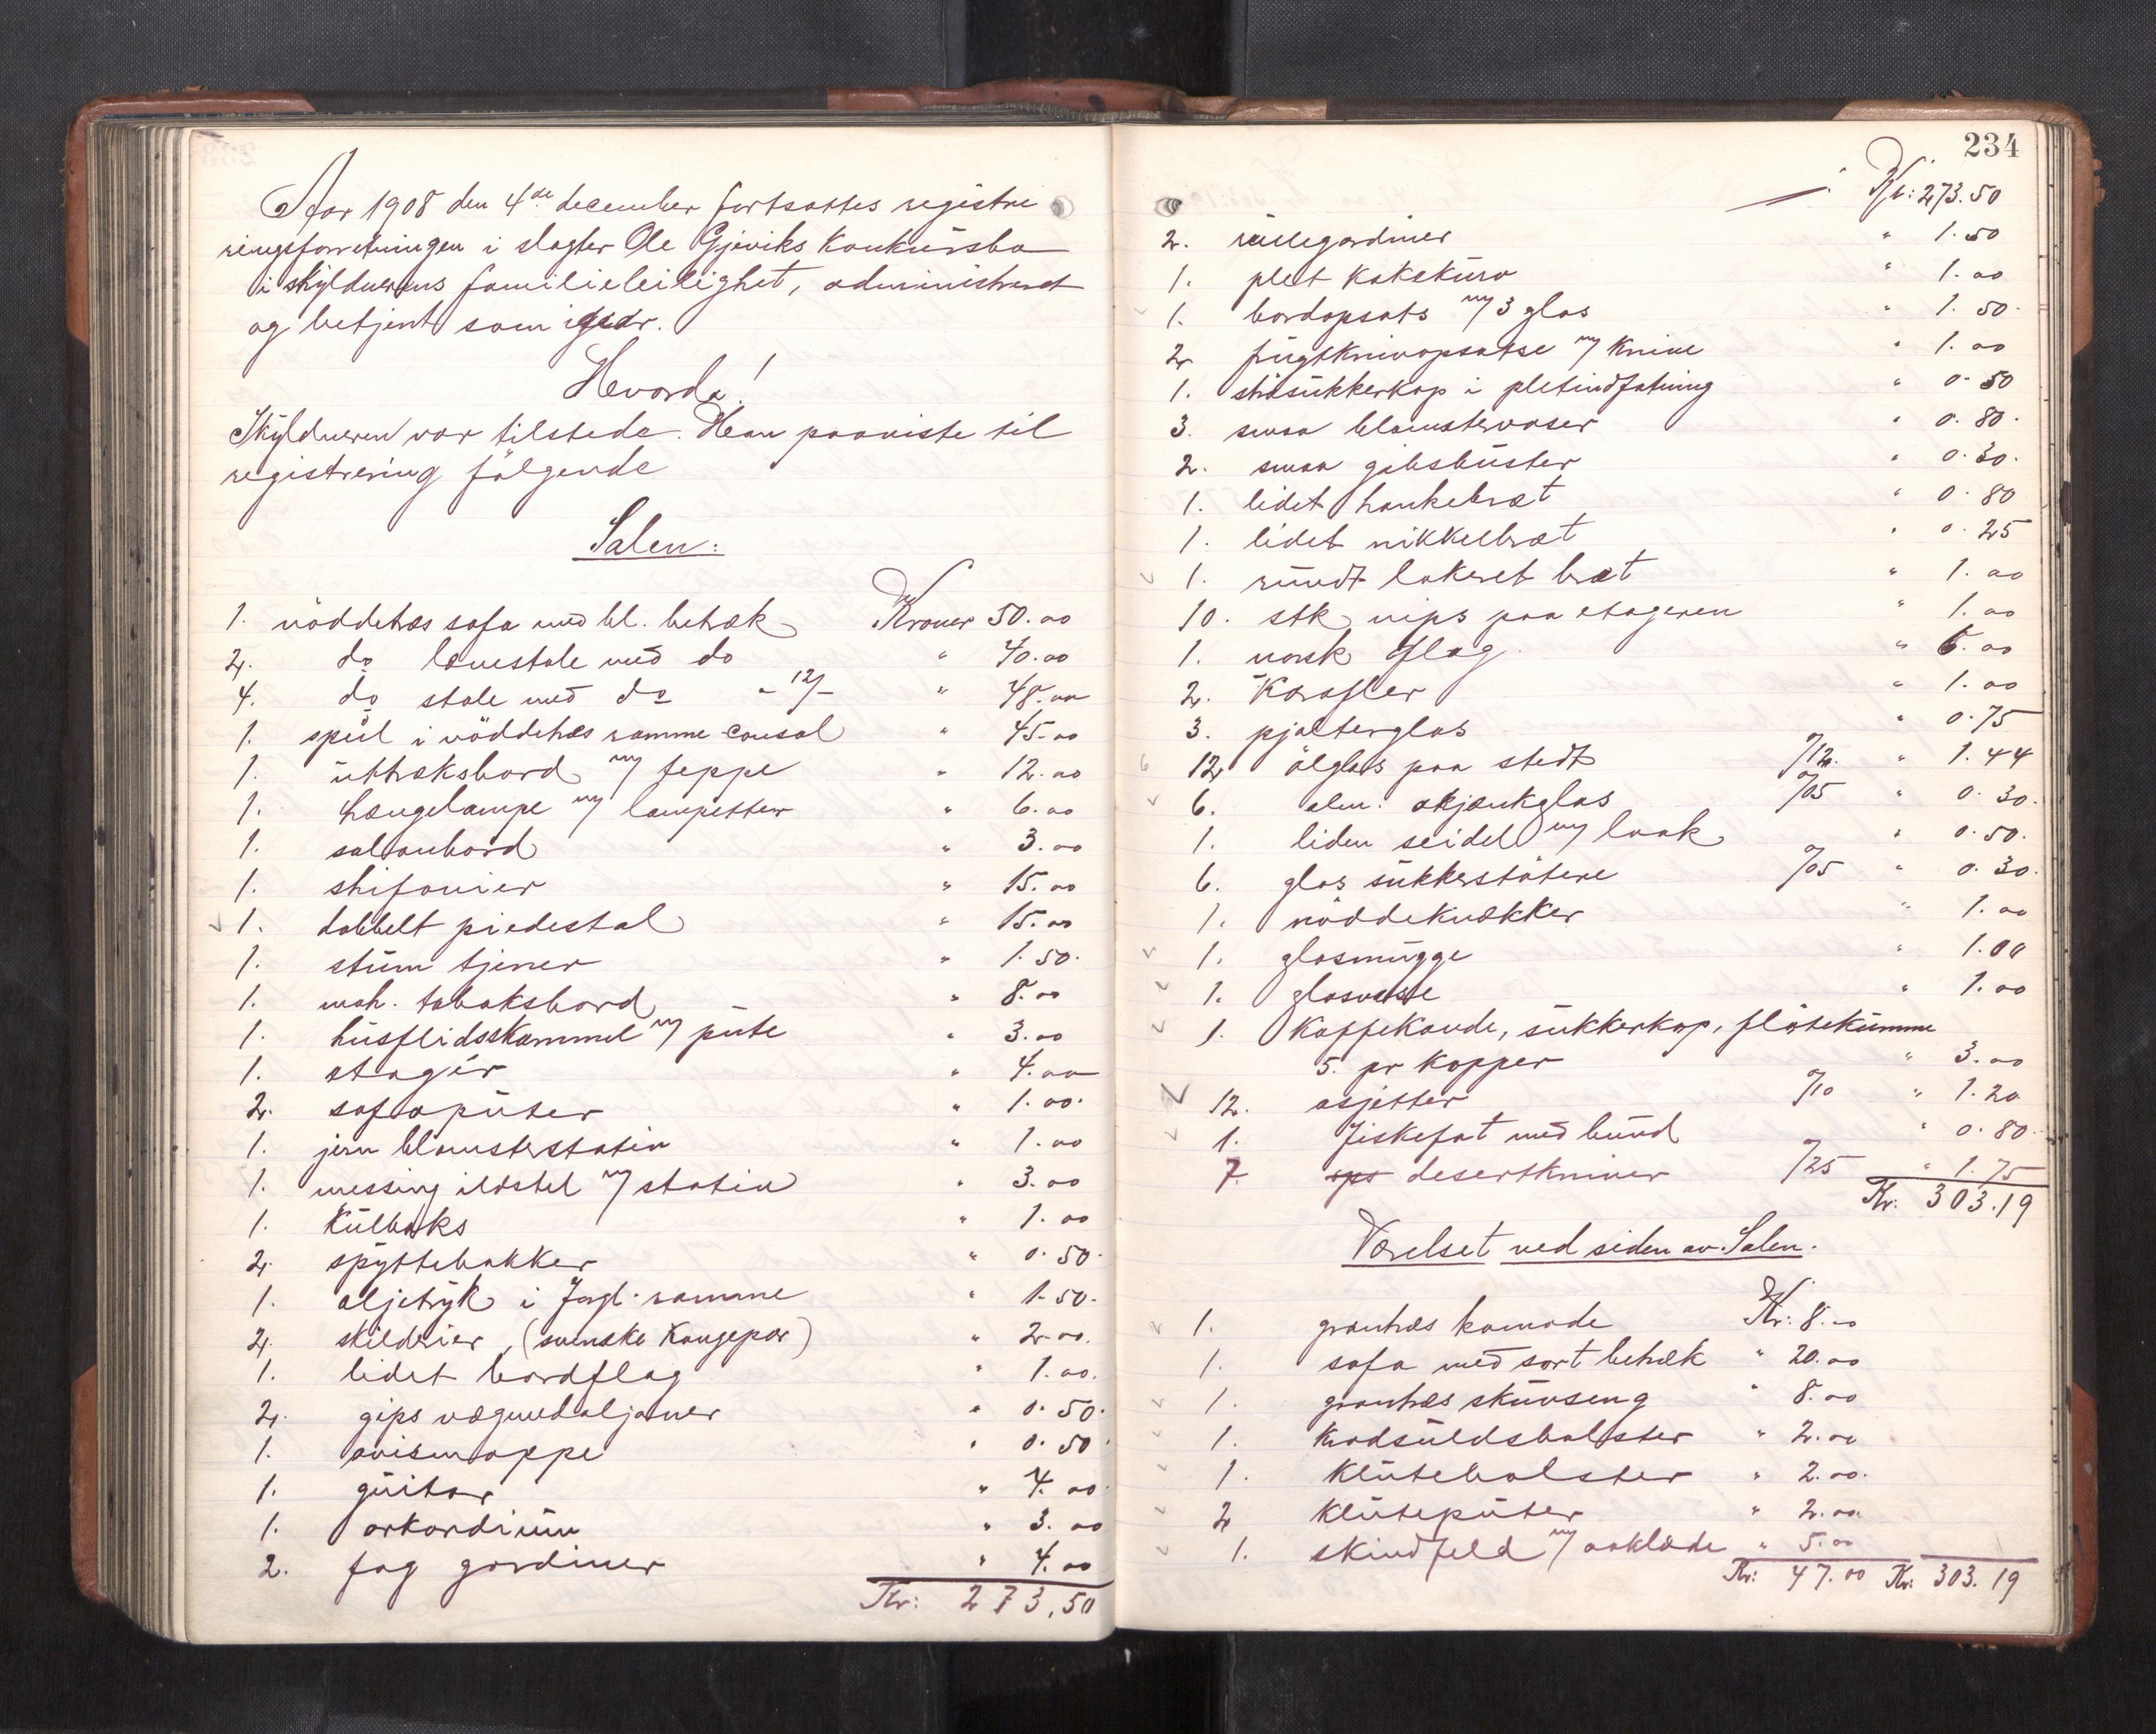 Aar 1908 den 4de december fortsattes registre
ringsforretningen i slagter Ole Gjeviks Konkursbo
i skyldnerens familieleilighet, administreret
og betjent som igaar.
Hvorda!
Skyldneren var tilstede. Han paaviste til
registrering følgende
Salen:
1. nöddetræs sofa med bl. betræk Kroner 50.00
2. do lænestole med do " 40.00
4. do stole med do - 12/- " 48.00
1. speil i nöddetræs ramme consol " 45.00
1. uttræksbord m/ teppe " 12.00
1. hængelampe m/ lampetter " 6.00
1. salonbord " 3.00
1. shifonier " 15.00
1. dobbelt piedestal " 15.00
1. stum tjener " 1.50.
1. mah. tobaksbord " 8.00
1. husflidsskammel m/ pute " 3.00
1. etagér " 4.00
2. sofaputer " 1.00.
1. jern blomsterstativ " 1.00
1. messing ildstel m/ stativ " 3.00
1. Kulboks " 1.00
2. spyttebakker " 0.50.
1. oljetryk i forgl. ramme " 1.50.
2. skilderier, (svenske Kongepar) " 2.00.
1. lidet bordflag " 1.00.
2. gips vægmedaljoner " 0.50.
1. avismappe " 0.50.
1. guitar " 4.00.
1. arkordium " 3.00
2. fag gardiner " 4.00
Kr: 273,50
234
Kr: 273.50
2. rullegardiner " 1.50
1. plet Kakekurv " 1.00
1. bordopsats m/ 3 glas " 1.50.
2. frugtknivopsatse m/ Knive " 1.00
1. strösukkerkop i pletindfatning " 0.50
3. smaa blomstervaser " 0.80.
2. smaa gibsbuster " 0.30.
1. lidet hankebræt " 0.80
1. lidet nikkelbræt " 0.25
1. rundt lakeret bræt " 1.00
10. stk nips paa etageren " 1.00
1. norsk flag " 6.00
2. Karafler " 1.00
3. pjolterglas " 0.75
12. ölglas paa stedt º/12. " 1.44
6. alm. skjænkglas º/05 " 0.30.
1. liden seidel m/ laak " 0.50.
6. glas sukkerstötere º/05 " 0.30.
1. nöddeknækker " 1.00
1. glasmugge " 1.00
1. glasvase " 1.00
1. Kaffekande, sukkerkop, flötekumme
5. pr Kopper " 3.00
12. asjetter º/10 " 1.20
1. fiskefat med bund " 0.80.
7. desertkniver º/25 " 1.75
Kr. 303.19
Værelset ved siden av Salen.
1. grantræs komode Kr: 8.00
1. sofa med sort betræk " 20.00
1. grantræs skuvseng " 8.00
1. Kradsuldsbolster " 2.00
1. Klutebolster " 2.00.
2 Kluteputer " 2.00.
1. skindfeld m/ aaklæde " 5.00
Kr: 47.00 Kr: 303.19